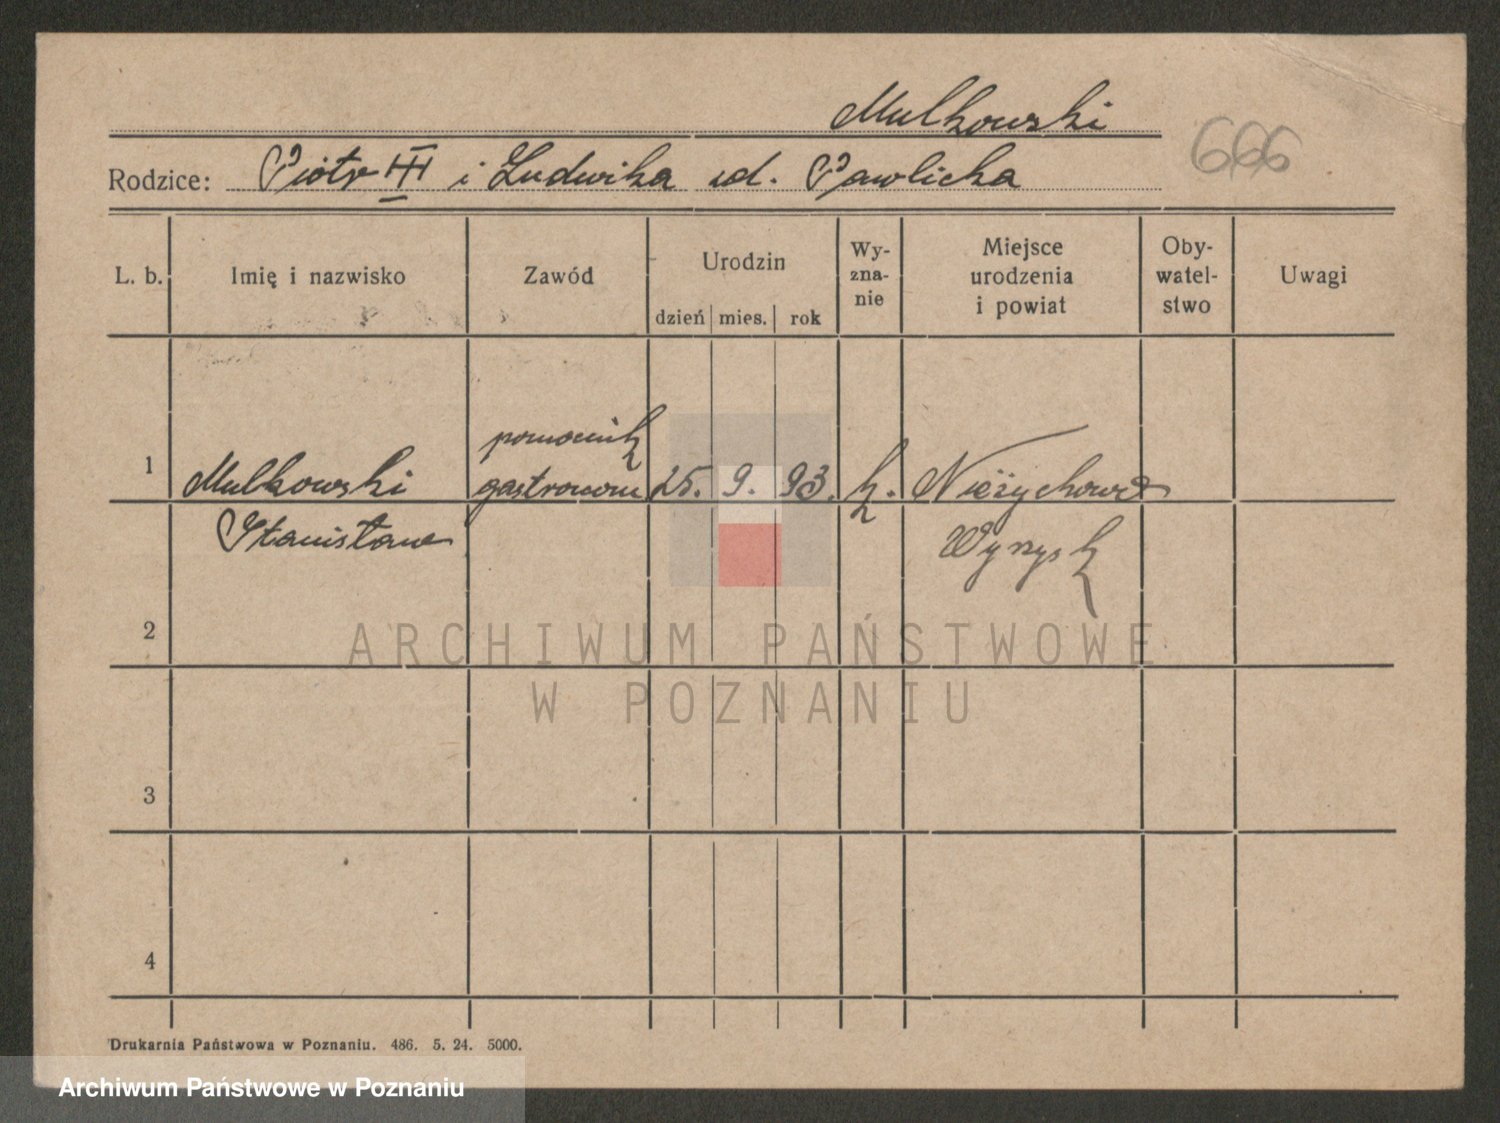 Mulkowski
666
Rodzice: Piotr III i Ludwika ud. Pawlicka
L. b. Imię i nazwisko Zawód Urodzin dzień mies. rok Wy-zna-nie Miejsce urodzenia i powiat Oby-watel-stwo Uwagi
pomocnik
1 Mulkowski gastronom 25. 9. 93. k. Nieżychowo
Stanisław Wyrzysk
2
ARCHIWUM PAŃSTWOWE
W POZNANIU
3
4
Drukarnia Państwowa w Poznaniu. 486. 5. 24. 5000.
Archiwum Państwowe w Poznaniu